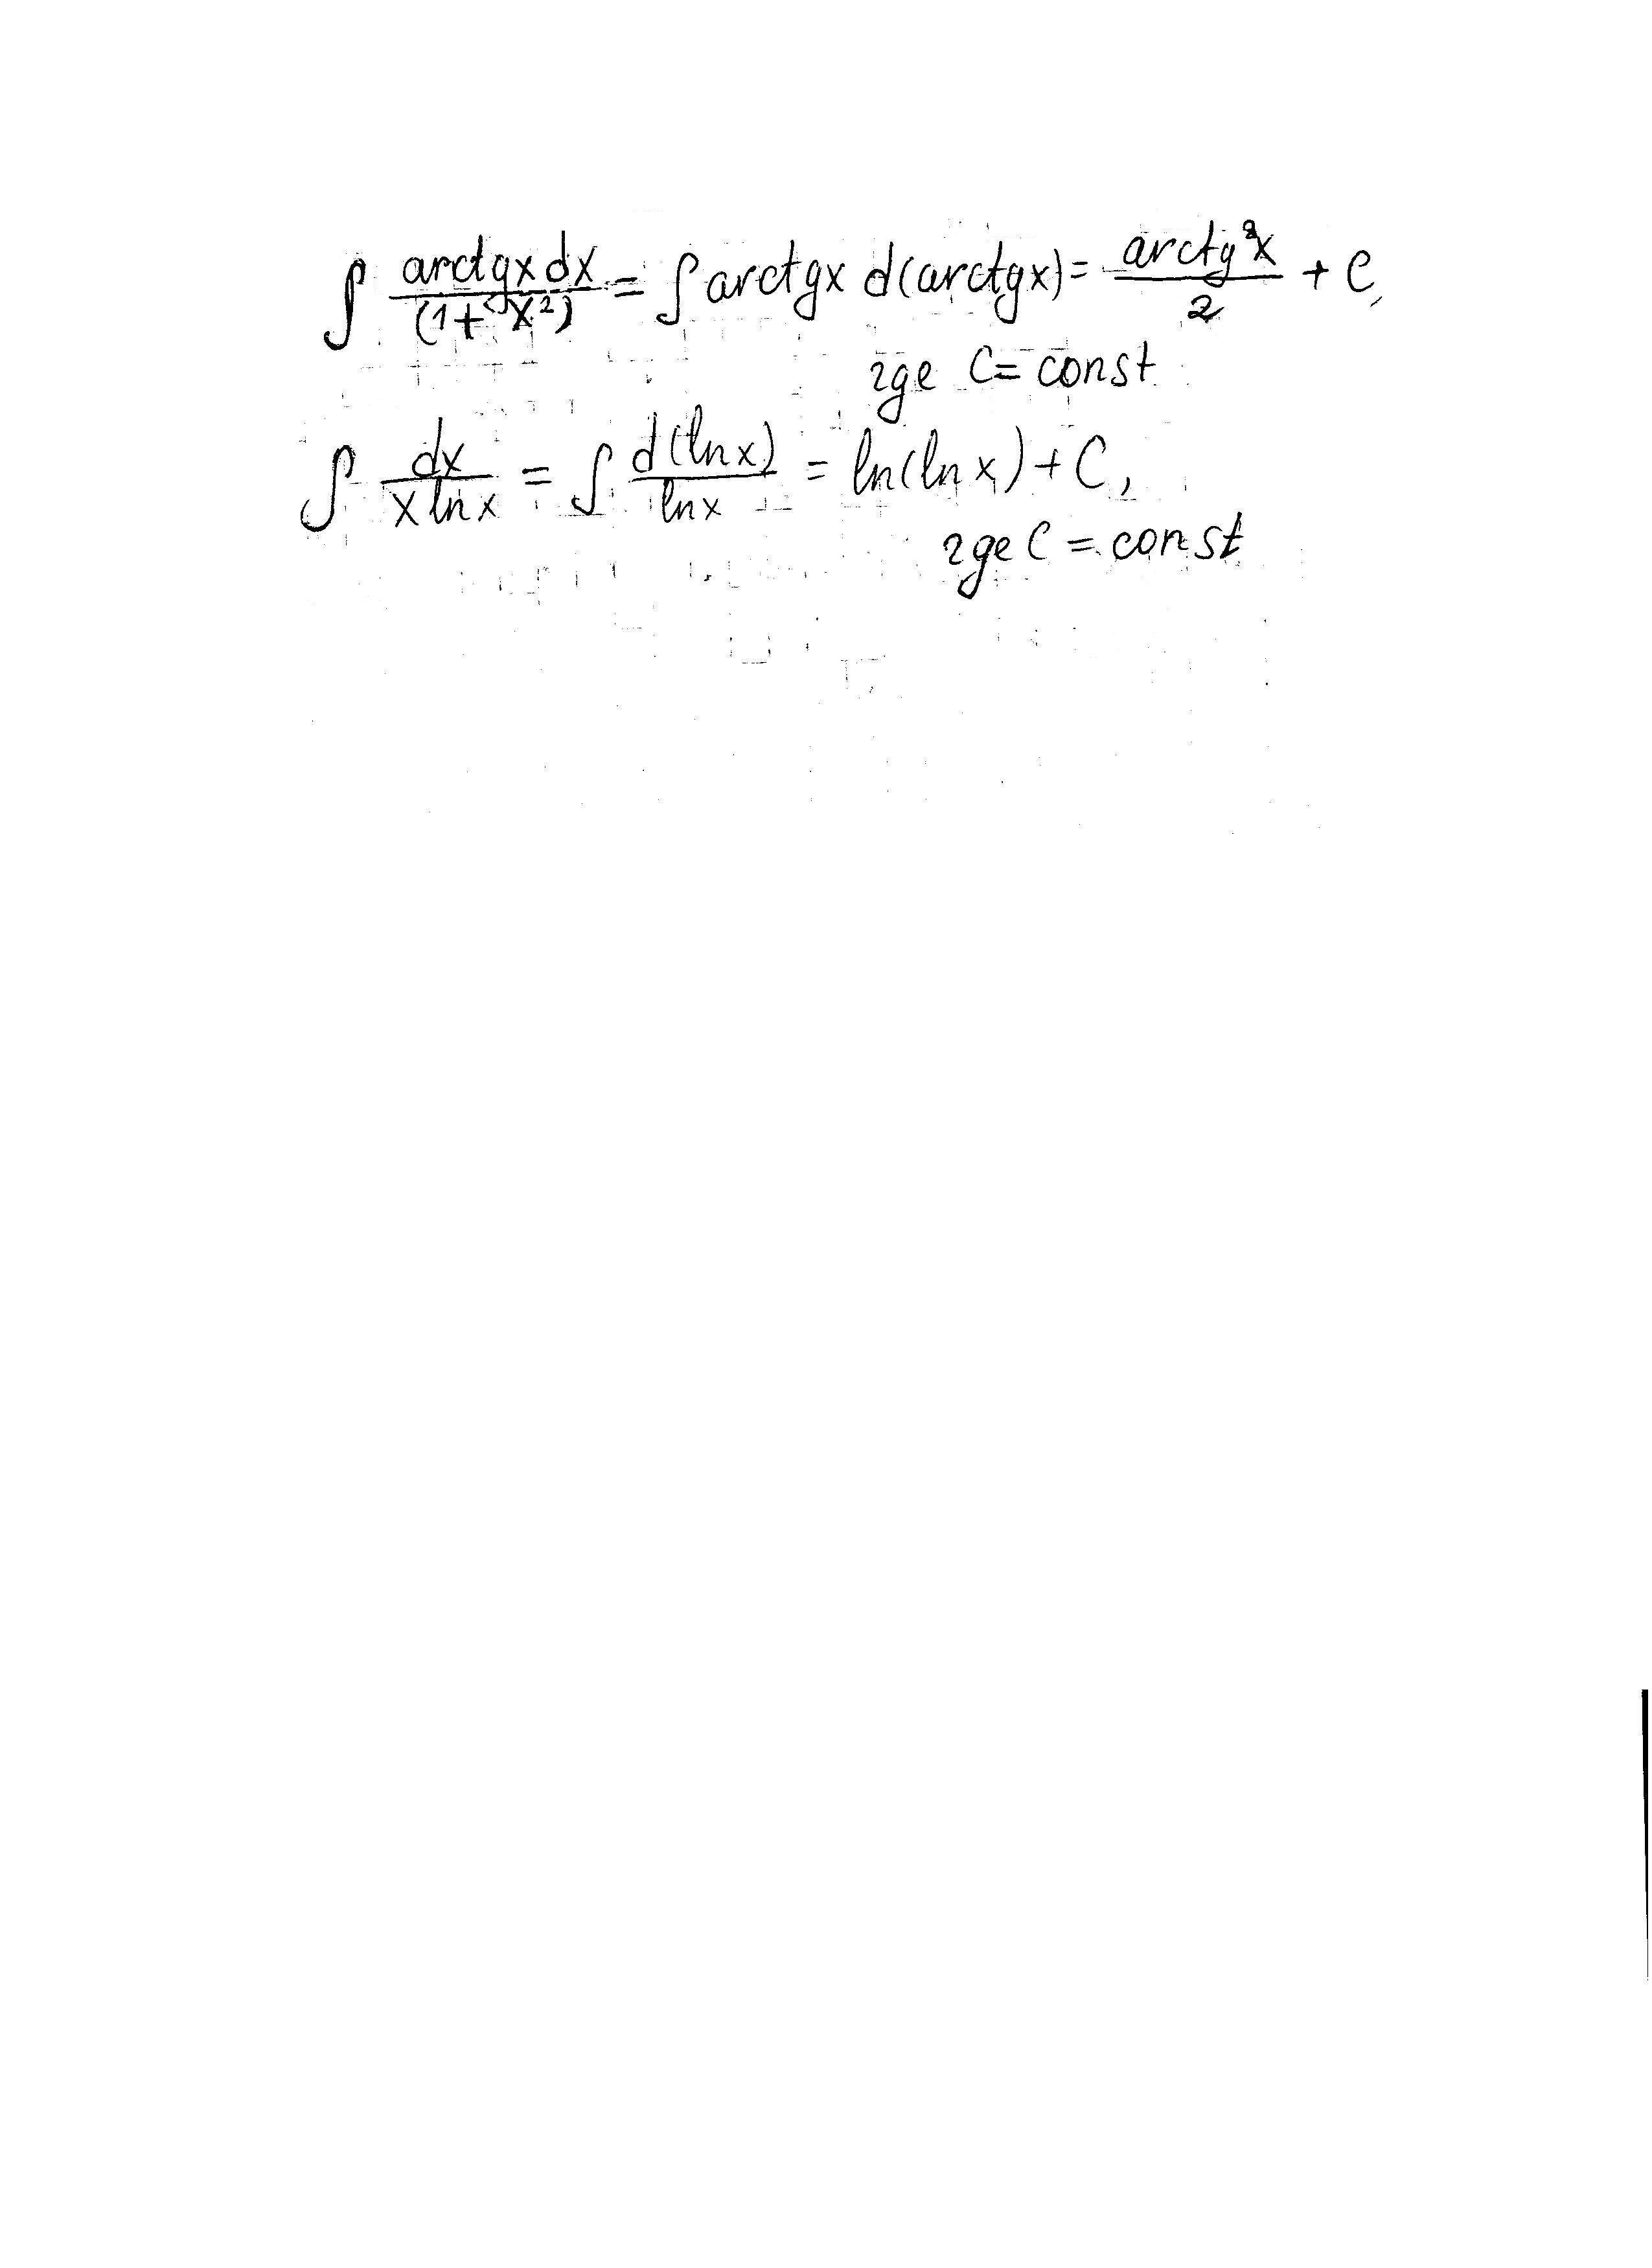 ∫ arctgx dx / (1 + x²) = ∫ arctgx d(arctgx) = arctg²x / 2 + C,
где C = const
∫ dx / x ln x = ∫ d(ln x) / ln x = ln(ln x) + C,
где C = const